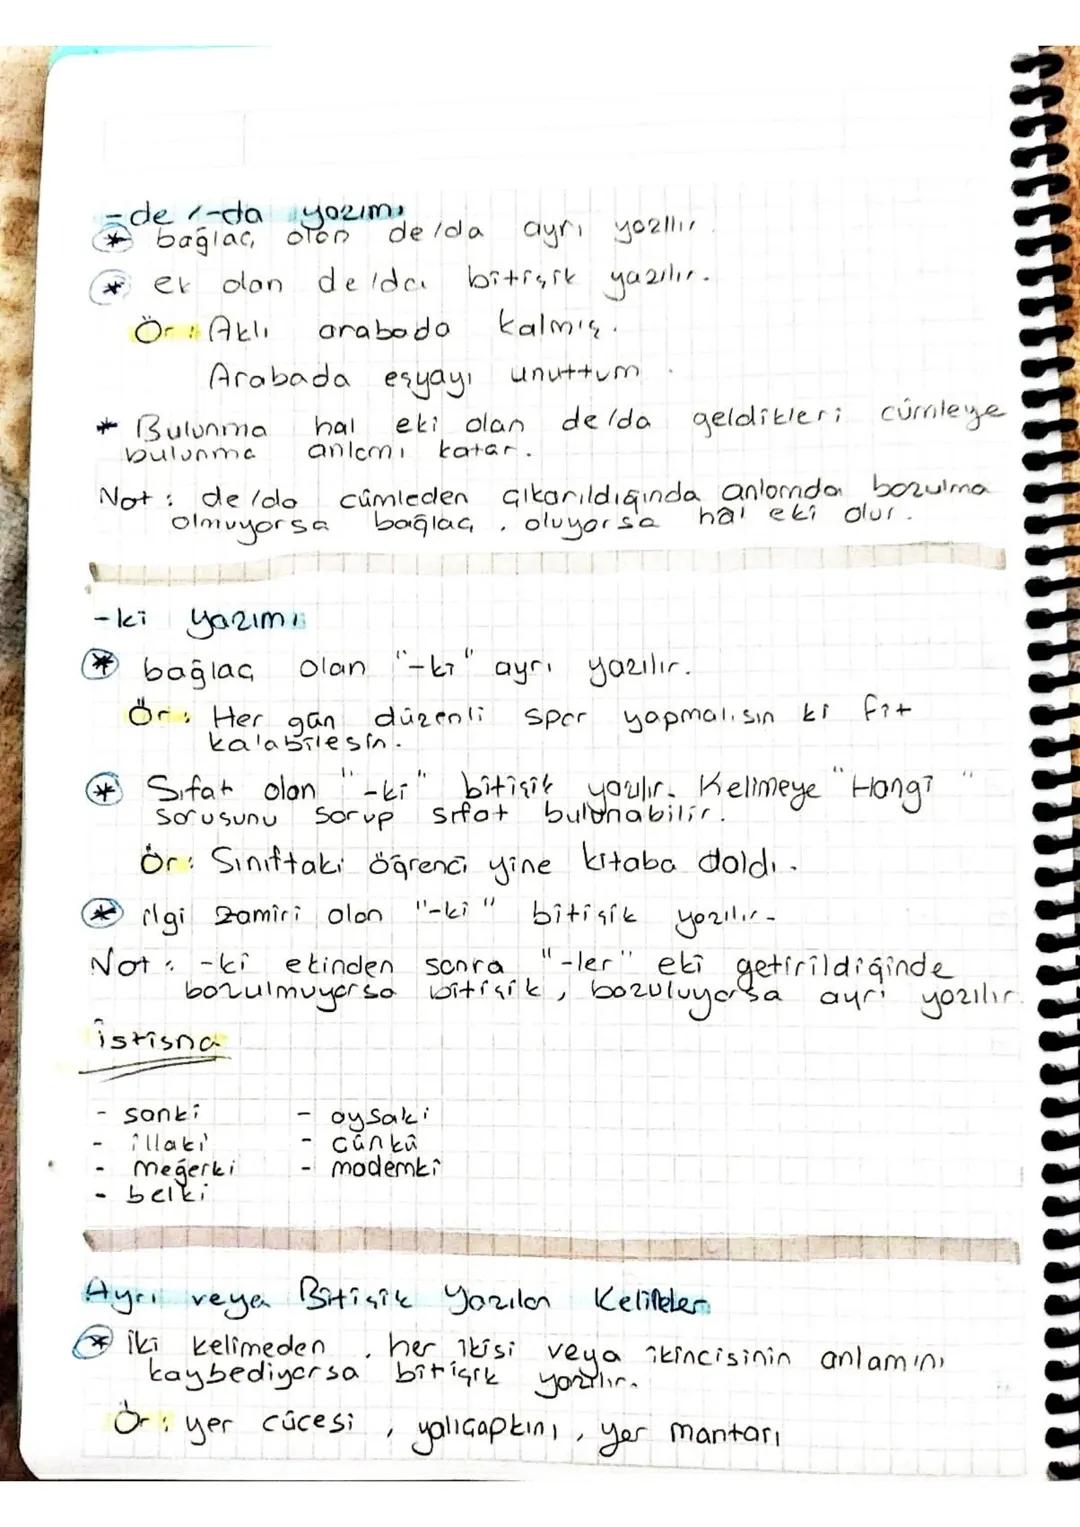 -de /-da yazımı
* bağlaç olan de/da ayrı yazılır.
* ek olan de/da bitişik yazılır.
Ör: Aklı arabada kalmış.
Arabada eşyayı unuttum.
* Bulunma hal eki olan de/da geldikleri cümleye
bulunma anlamı katar.
Not: de/da cümleden çıkarıldığında anlamda bozulma
olmuyorsa bağlaç, oluyorsa hal eki olur.
-ki yazımı
* bağlaç olan "-ki" ayrı yazılır.
Ör: Her gün düzenli spor yapmalısın ki fit
kalabilesin.
* Sıfat olan "-ki" bitişik yazılır. Kelimeye "Hangi"
sorusunu sorup sıfat bulunabilir.
Ör: Sınıftaki öğrenci yine kitaba daldı.
* ilgi zamiri olan "-ki" bitişik yazılır.
Not: -ki ekinden sonra "-ler" eki getirildiğinde
bozulmuyorsa bitişik, bozuluyorsa ayrı yazılır.
istisna
- sanki - oysaki
- illaki - çünkü
- meğerki - mademki
- belki
Ayrı veya Bitişik Yazılan Kelimeler
* iki kelimeden, her ikisi veya ikincisinin anlamını
kaybediyorsa bitişik yazılır.
Ör: yer cücesi, yalıçapkını, yer mantarı